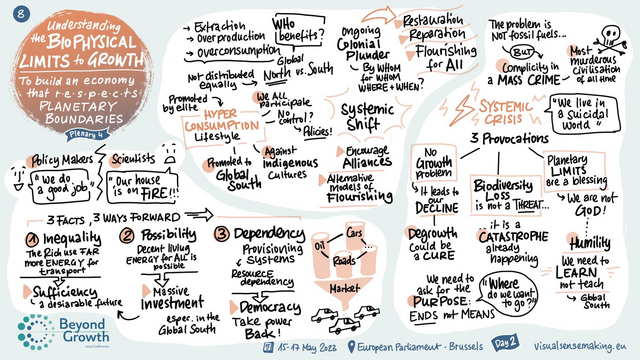 8
Understanding
the BIOPHYSICAL
LIMITS to GROWTH
To build an economy
that r·e·s·p·e·c·t·s
PLANETARY
BOUNDARIES
Plenary 4
Policy Makers
"We do
a good job"
Scientists
"Our house
is on FIRE!!!"
→ Extraction
→ Overproduction
→ Overconsumption
WHO
benefits?
Not distributed
equally
→ Global
North vs. South
Promoted
by elite
HYPER
CONSUMPTION
Lifestyle
We ALL
participate
No
control?
→ Policies!
Promoted to
Global
South
Against
indigenous
Cultures
Ongoing
Colonial
Plunder
→ By WHOM
for WHOM
WHERE + WHEN?
Restauration
Reparation
Flourishing
for All
Systemic
Shift
Encourage
Alliances
Alternative
Models of
Flourishing
The problem is
Not fossil fuels...
BUT
Complicity in
a MASS CRIME
→ Most
murderous
Civilisation
of all time
SYSTEMIC
CRISIS
"We live in
a Suicidal
World"
3 Provocations
No
Growth
problem
→ It leads to
our
DECLINE
Degrowth
Could be
a CURE
Biodiversity
Loss
is not a THREAT...
it is a
CATASTROPHE
already
happening
Planetary
LIMITS
are a blessing
→ We are not
GOD!
Humility
We need to
LEARN
not teach
→ Global
South
We need to
ask for the
PURPOSE:
ENDS not MEANS
"Where
do we want
to go?"
3 FACTS, 3 WAYS FORWARD
1 Inequality
The Rich use FAR
more ENERGY for
transport
Sufficiency
a desirable future
2 Possibility
Decent living
ENERGY for ALL is
possible
Massive
Investment
espec. in the
Global South
3 Dependency
Provisioning
Systems
Resource
dependency
Democracy
Take power
Back!
Oil
Cars
Roads
...
Market
Beyond
Growth
2023 Conference
15-17 May 2023
European Parliament · Brussels
Day 2
visualsensemaking.eu